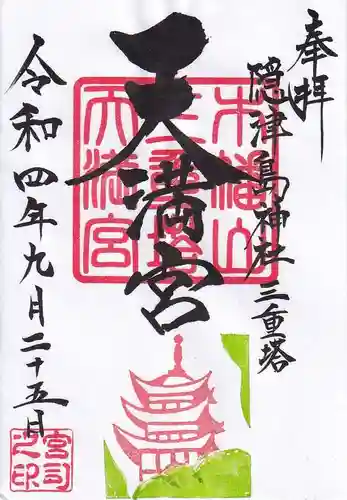 奉拝
隠津島神社三重塔
天満宮
令和四年九月二十五日
木幡山
三重塔
天満宮
宮司
之印